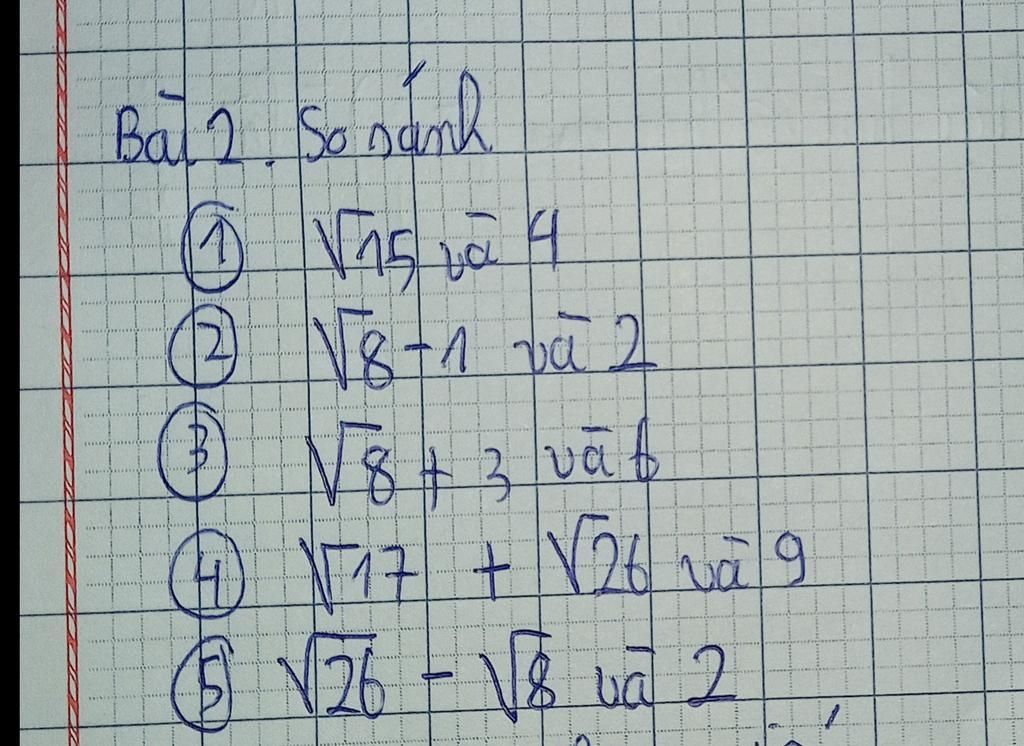 Bài 2. So sánh
① √15 và 4
② √8 - 1 và 2
③ √8 + 3 và 6
④ √17 + √26 và 9
⑤ √26 - √8 và 2